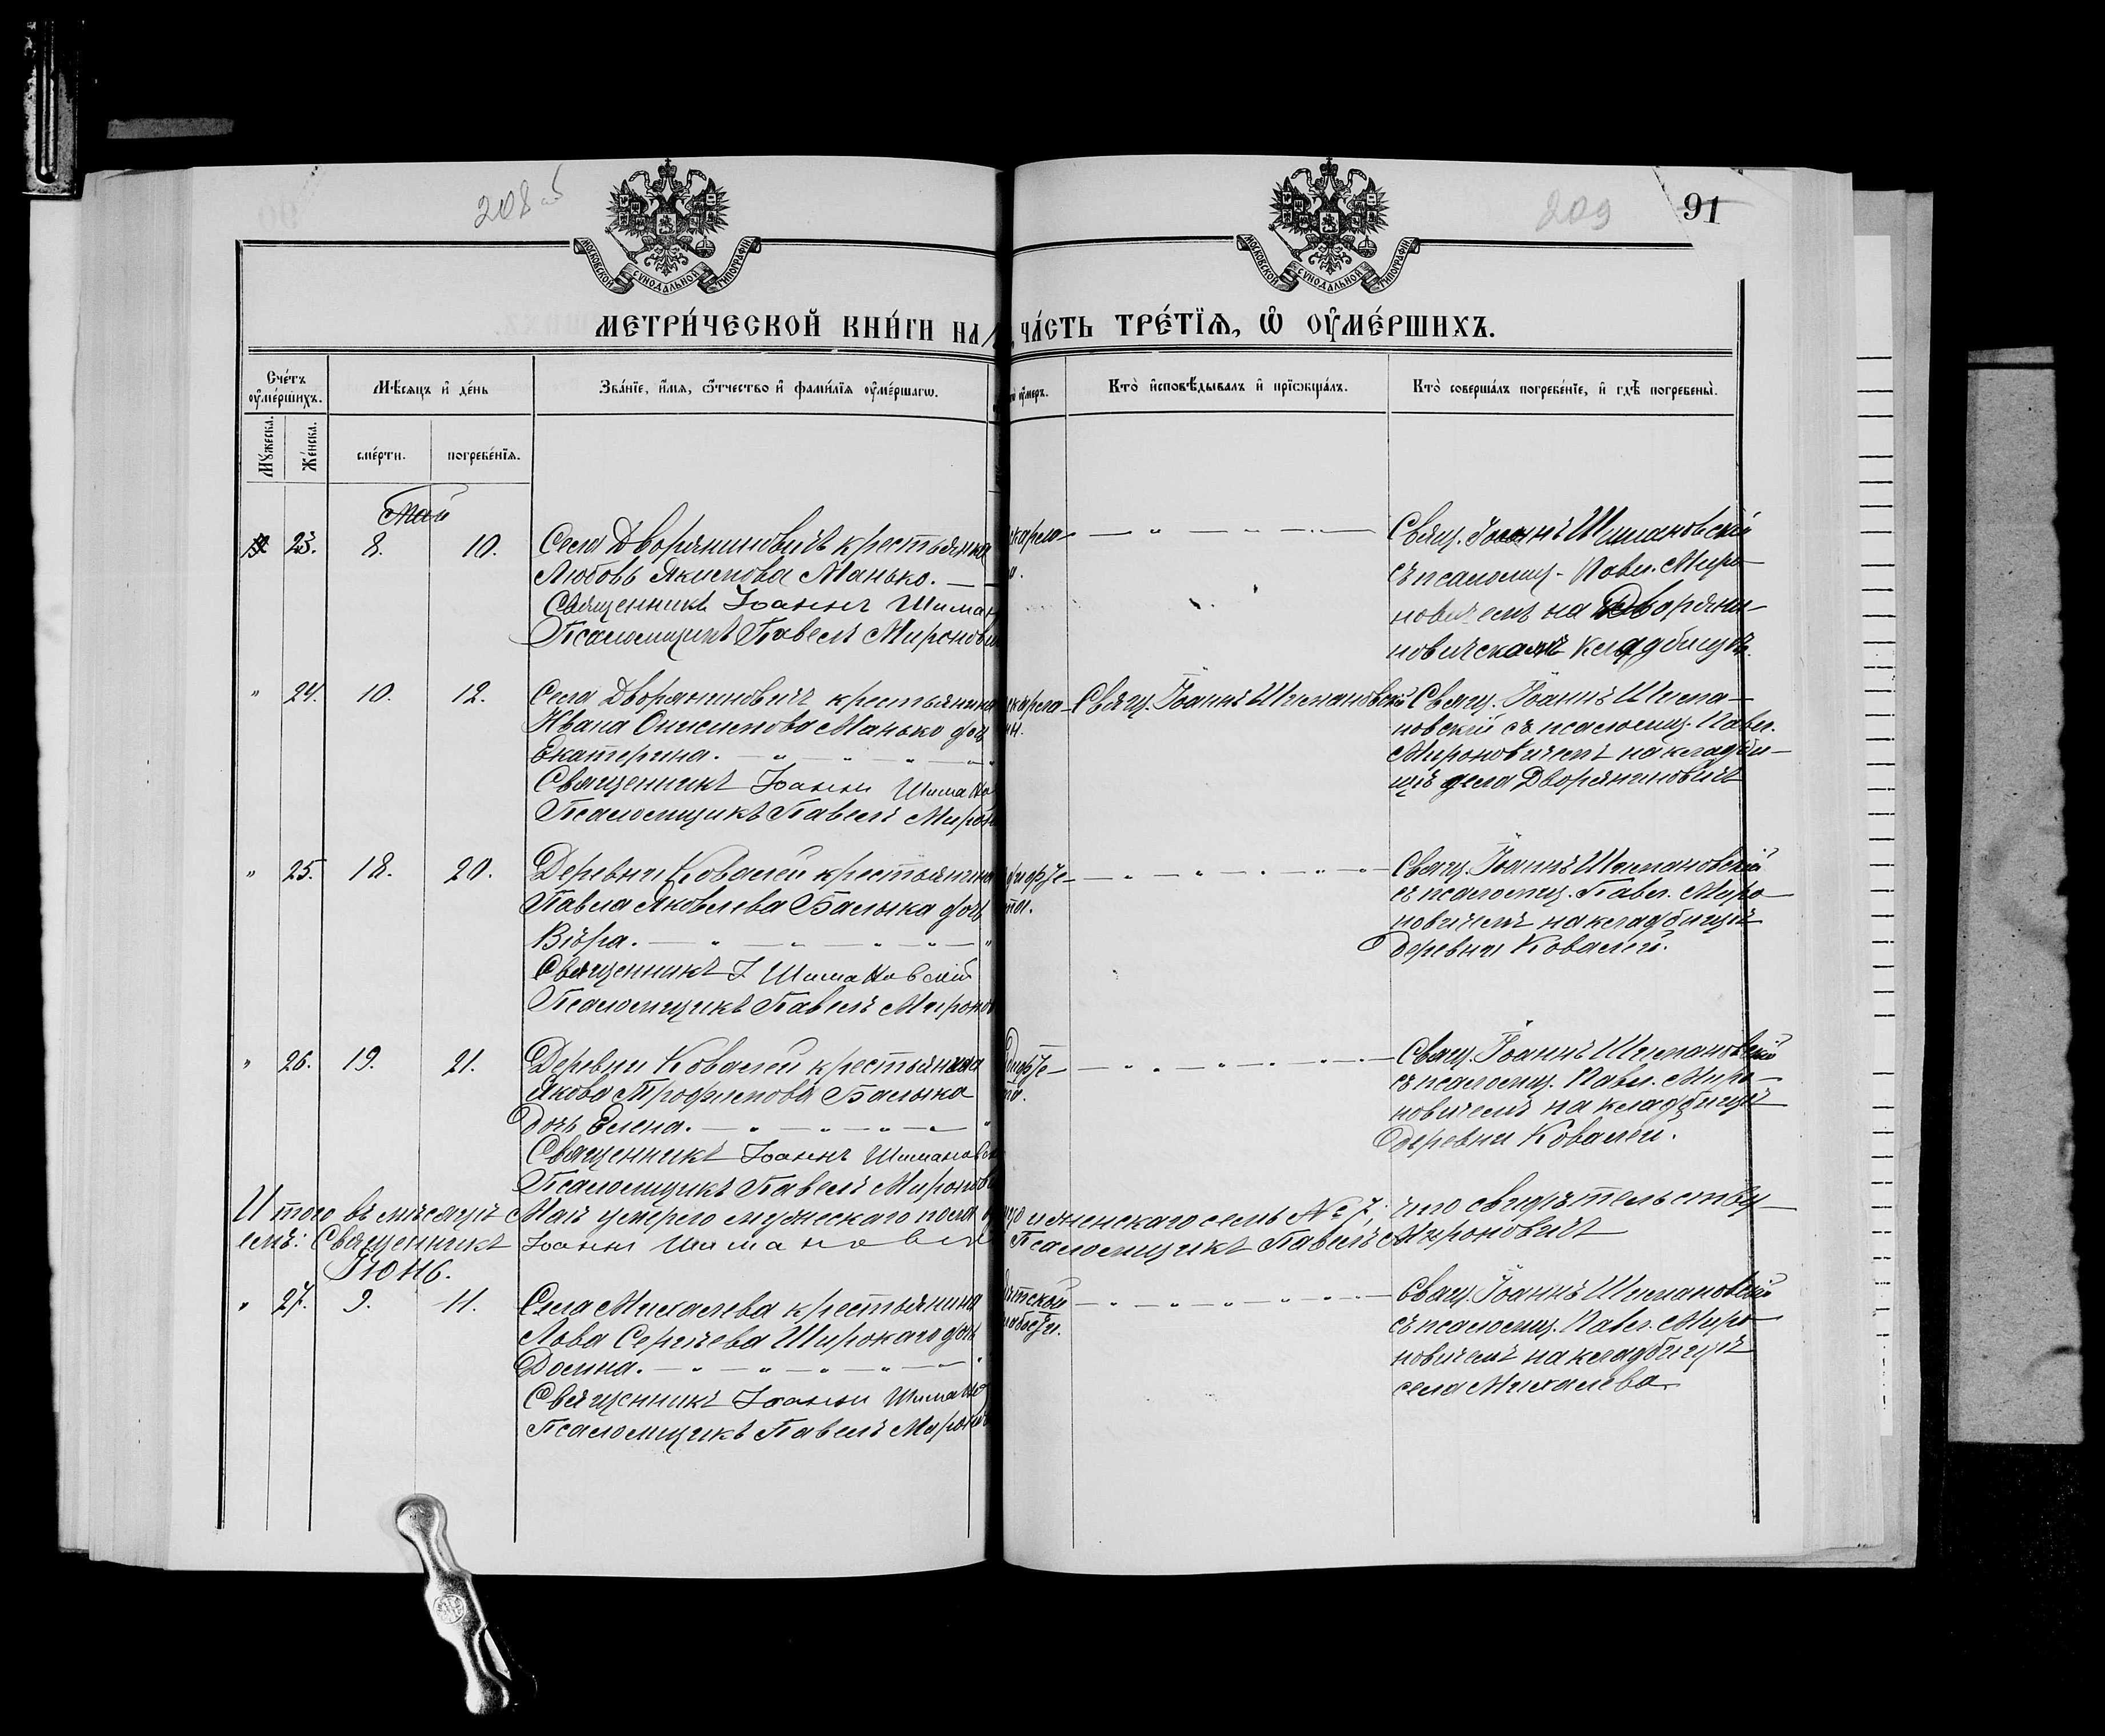 208 об
209
91
МОСКОВСКОЙ СѴНОДАЛЬНОЙ ТИПОГРАФІИ
МОСКОВСКОЙ СѴНОДАЛЬНОЙ ТИПОГРАФІИ
МЕТРИ́ЧЕСКОЙ КНИ́ГИ НА
ЧА́СТЬ ТРЕ́ТЇѦ, Ѡ҆ ОУ҆МЕ́РШИХЪ.
Сче́тъ оу҆ме́ршихъ.
Мѣ́сяцъ и҆ де́нь
Зва́нїе, и҆́мя, ѻ҆́тчество и҆ фами́лїя оу҆ме́ршагѡ.
оу҆́меръ.
Кто̀ и҆сповѣ́дывалъ и҆ прїѻбща́лъ.
Кто̀ соверша́лъ погребе́нїе, и҆ гдѣ̀ погребены̀.
Му́жеска.
Же́нска.
сме́рти.
погребе́нїя.
Май
23. 8. 10. Села Дворяниновичъ крестьянка
Любовь Якимова Манько.
Священникъ Іоаннъ Шиман
Псаломщикъ Павелъ Миронови
Свящ. Іоаннъ Шимановскій
съ псаломщ. Павл. Миро-
новичемъ на Дворяни-
новичскомъ кладбищѣ.
" 24. 10. 12. Села Дворяниновичъ крестьянина
Ивана Онисимова Манько дочь
Екатерина.
Священникъ Іоаннъ Шимано
Псаломщикъ Павелъ Мирон
Свящ. Іоаннъ Шимановскій
Свящ. Іоаннъ Шима-
новскій съ псаломщ. Павл.
Мироновичемъ на кладби-
щѣ села Дворяниновичъ
" 25. 18. 20. Деревни Ковалей крестьянина
Павла Яковлева Балыка дочь
Вѣра.
Священникъ І Шимановскій
Псаломщикъ Павелъ Миронов
Свящ. Іоаннъ Шимановскій
съ псаломщ. Павл. Миро-
новичемъ на кладбищѣ
деревни Ковалей.
" 26. 19. 21. Деревни Ковалей крестьянина
Якова Трофимова Балыка
дочь Елена.
Священникъ Іоаннъ Шимановск
Псаломщикъ Павелъ Миронов
Свящ. Іоаннъ Шимановскій
съ псаломщ. Павл. Миро-
новичемъ на кладбищѣ
деревни Ковалей.
Итого въ мѣсяцѣ Маѣ умерло мужескаго пола
и женскаго семь № 7, что свидѣтельству-
емъ: Священникъ Іоаннъ Шимановск
Псаломщикъ Павелъ Мироновичъ
Іюнь.
" 27. 9. 11. Села Михалева крестьянина
Льва Сергѣева Широкаго дочь
Домна.
Священникъ Іоаннъ Шимано
Псаломщикъ Павелъ Миронов
Свящ. Іоаннъ Шимановскій
съ псаломщ. Павл. Миро-
новичемъ на кладбищѣ
села Михалева.